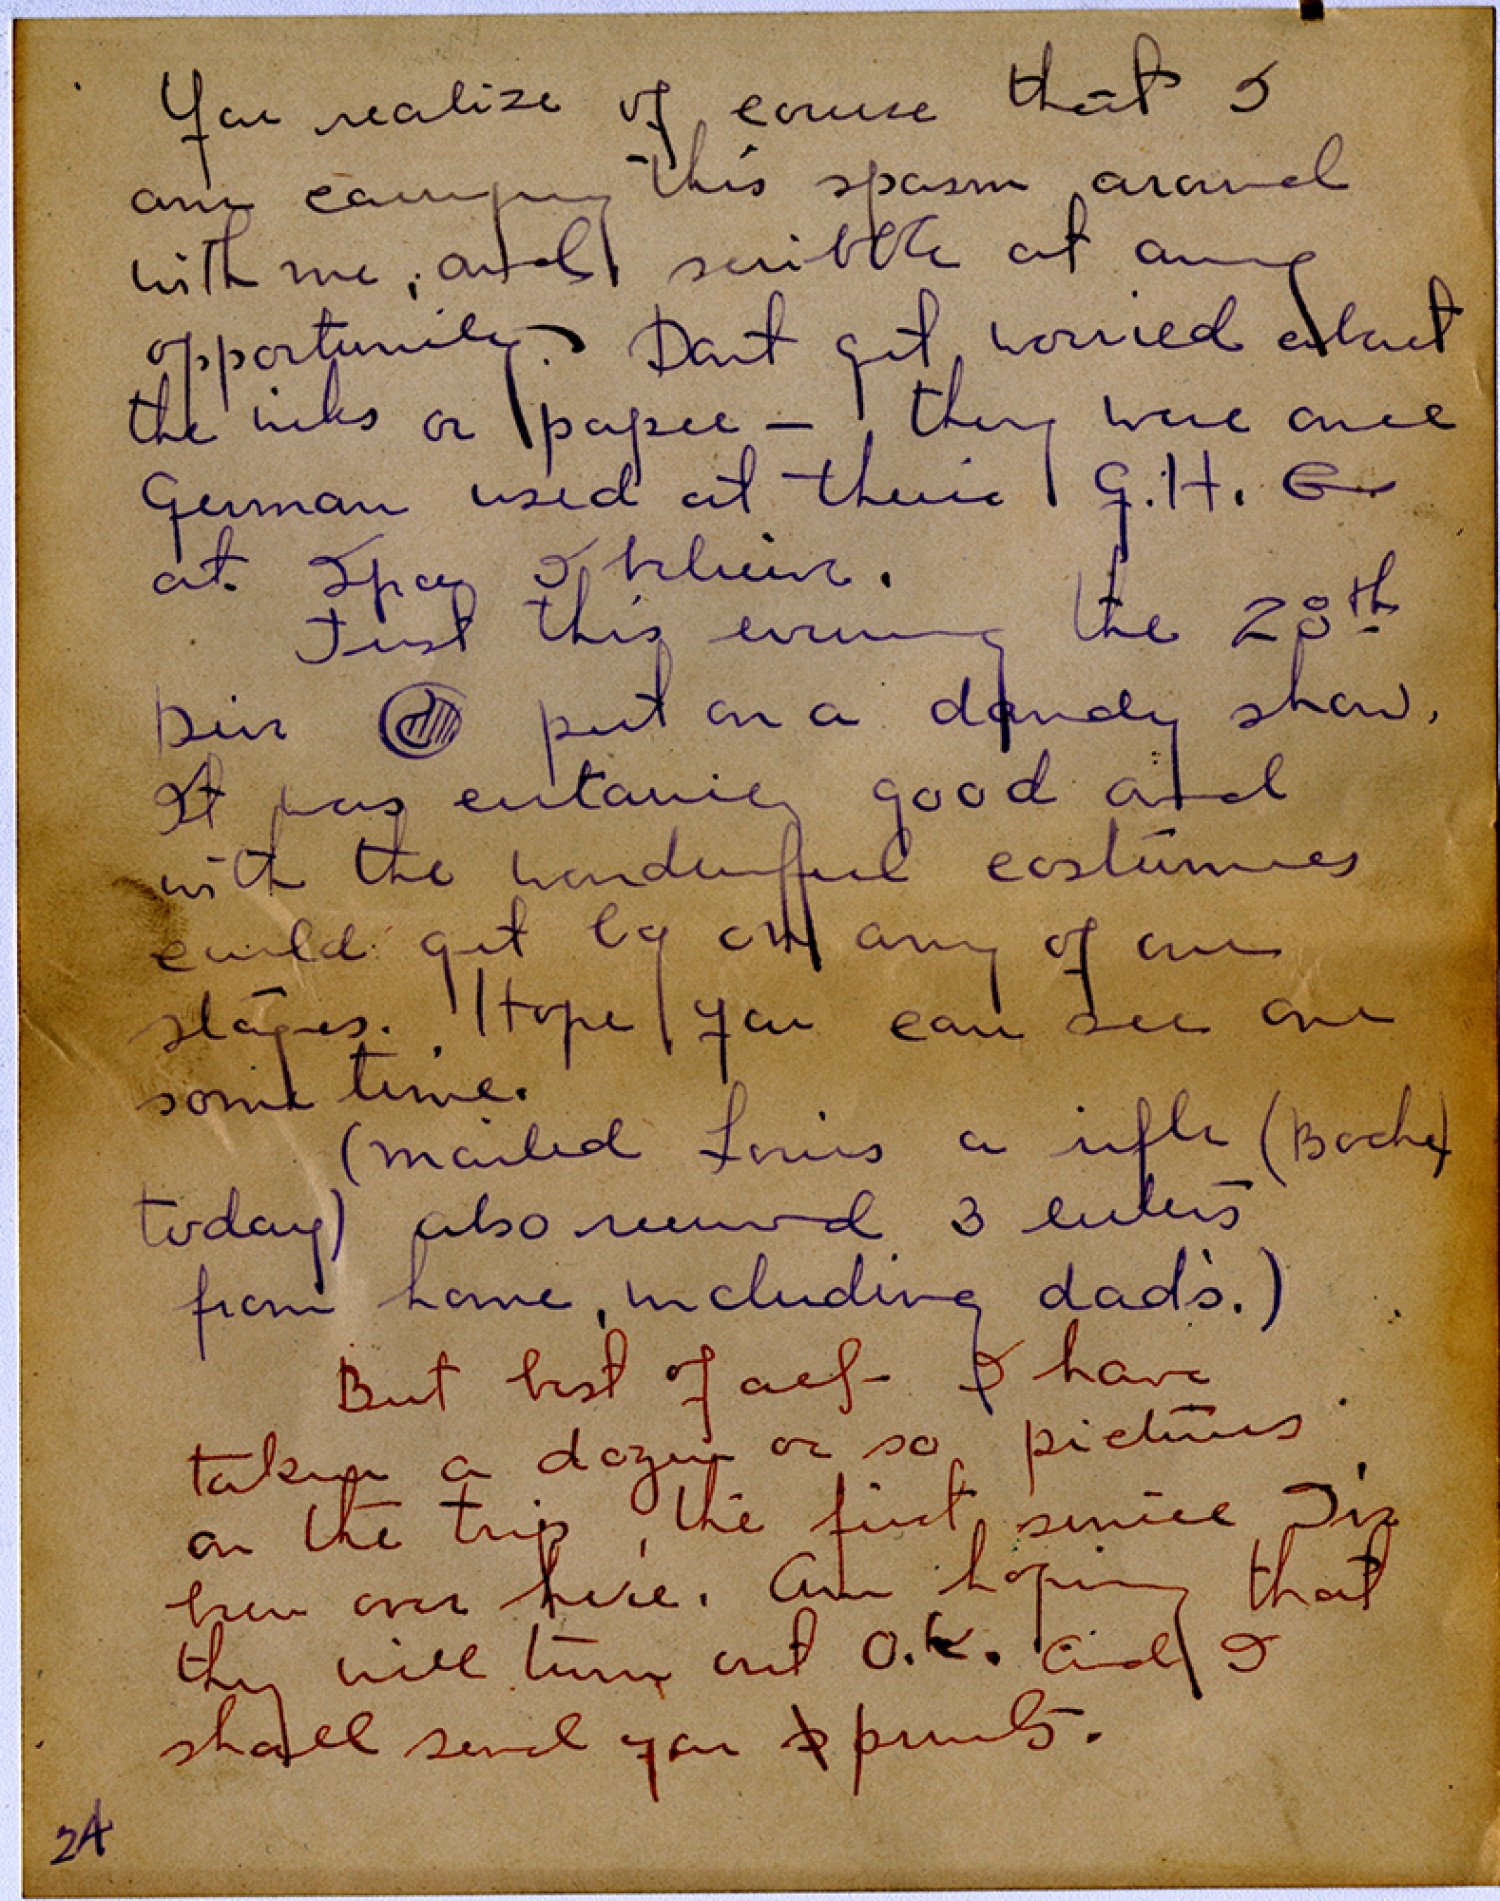 You realize of course that I
am carrying this spasm around
with me, and scribble at any
opportunity. Dont get worried about
the inks or paper — they were once
German used at their G.H.
at Spa I believe.
Just this evening the 28th
Div put on a dandy show.
It was certainly good and
with the wonderful costumes
could get by on any of our
stages. Hope you can see one
some time.
(Mailed Louis a rifle (Boche)
today) also received 3 letters
from home, including dad's.)
But best of all I have
taken a dozen or so pictures
on the trip, the first service I've
been over here. Am hoping that
they will turn out O.K. and I
shall send you prints.
24